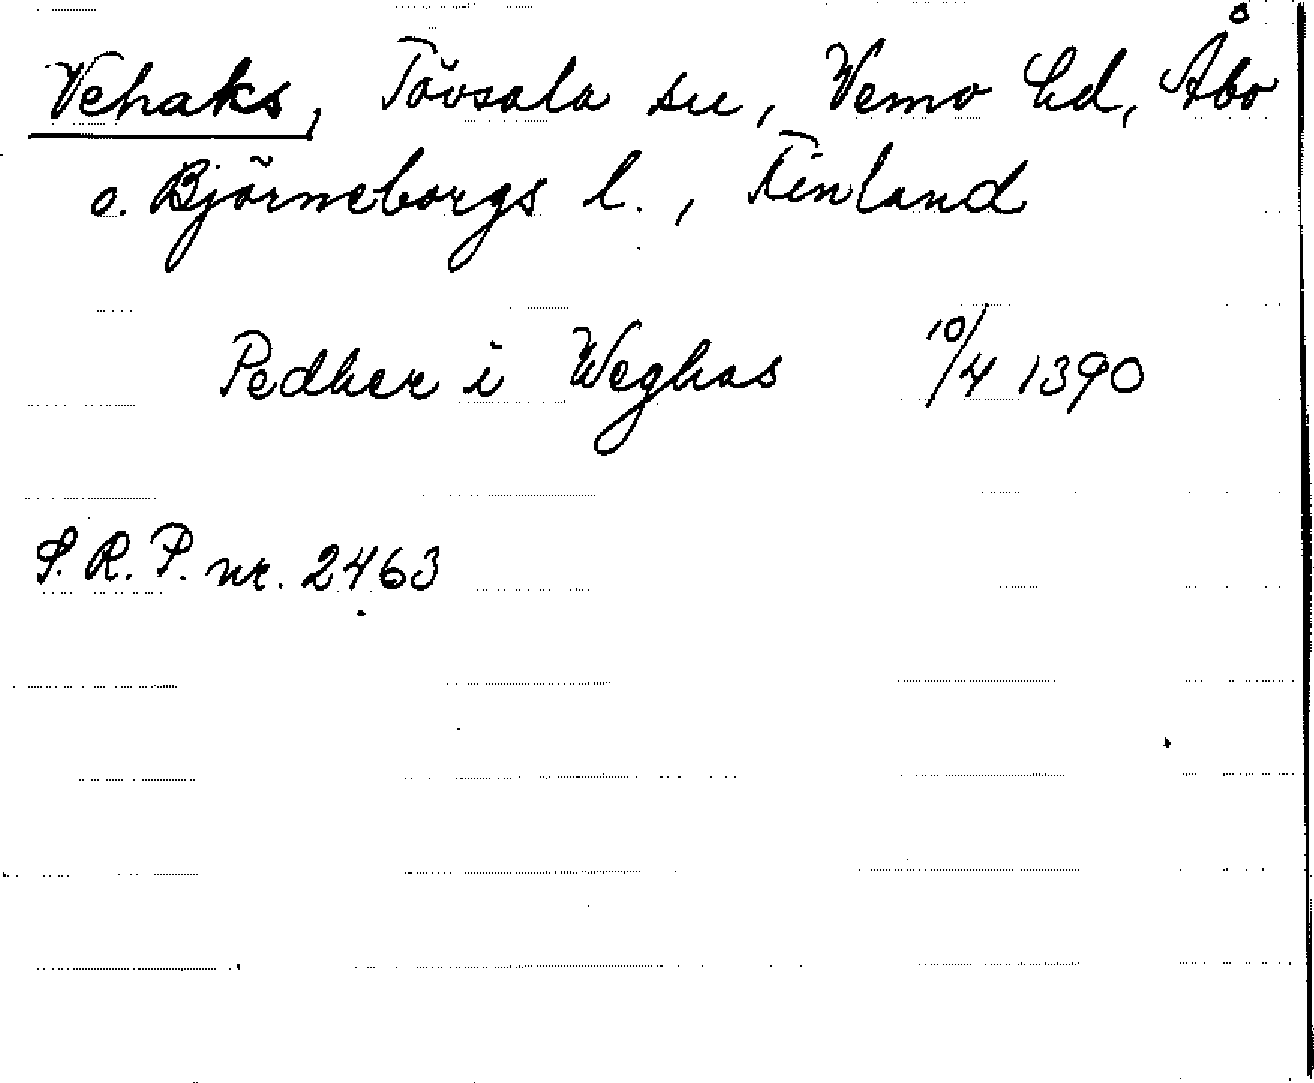 Vehaks, Tövsala sn, Vemo hd, Åbo
o. Björneborgs l., Finland
Pedher i Weghas 10/4 1390
S.R.P. nr. 2463